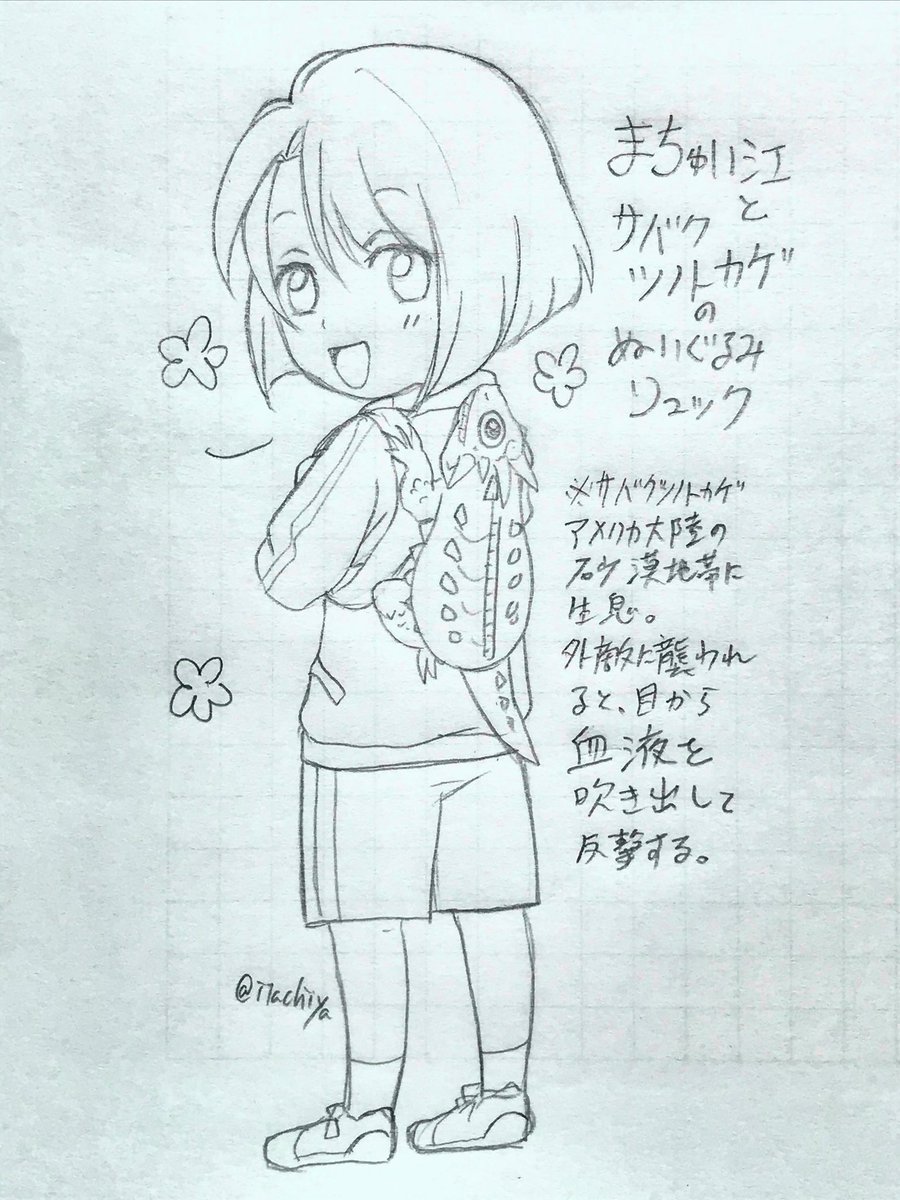 まちゅい江
と
サバク
ツノトカゲ
の
ぬいぐるみ
リュック
※サバクツノトカゲ
アメリカ大陸の
砂漠地帯に
生息。
外敵に襲われ
ると、目から
血液を
吹き出して
反撃する。